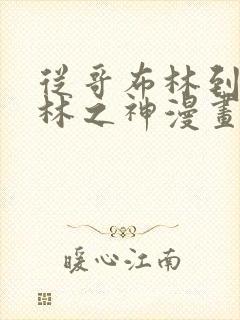 從哥布林到
林之神漫畫
暖心江南